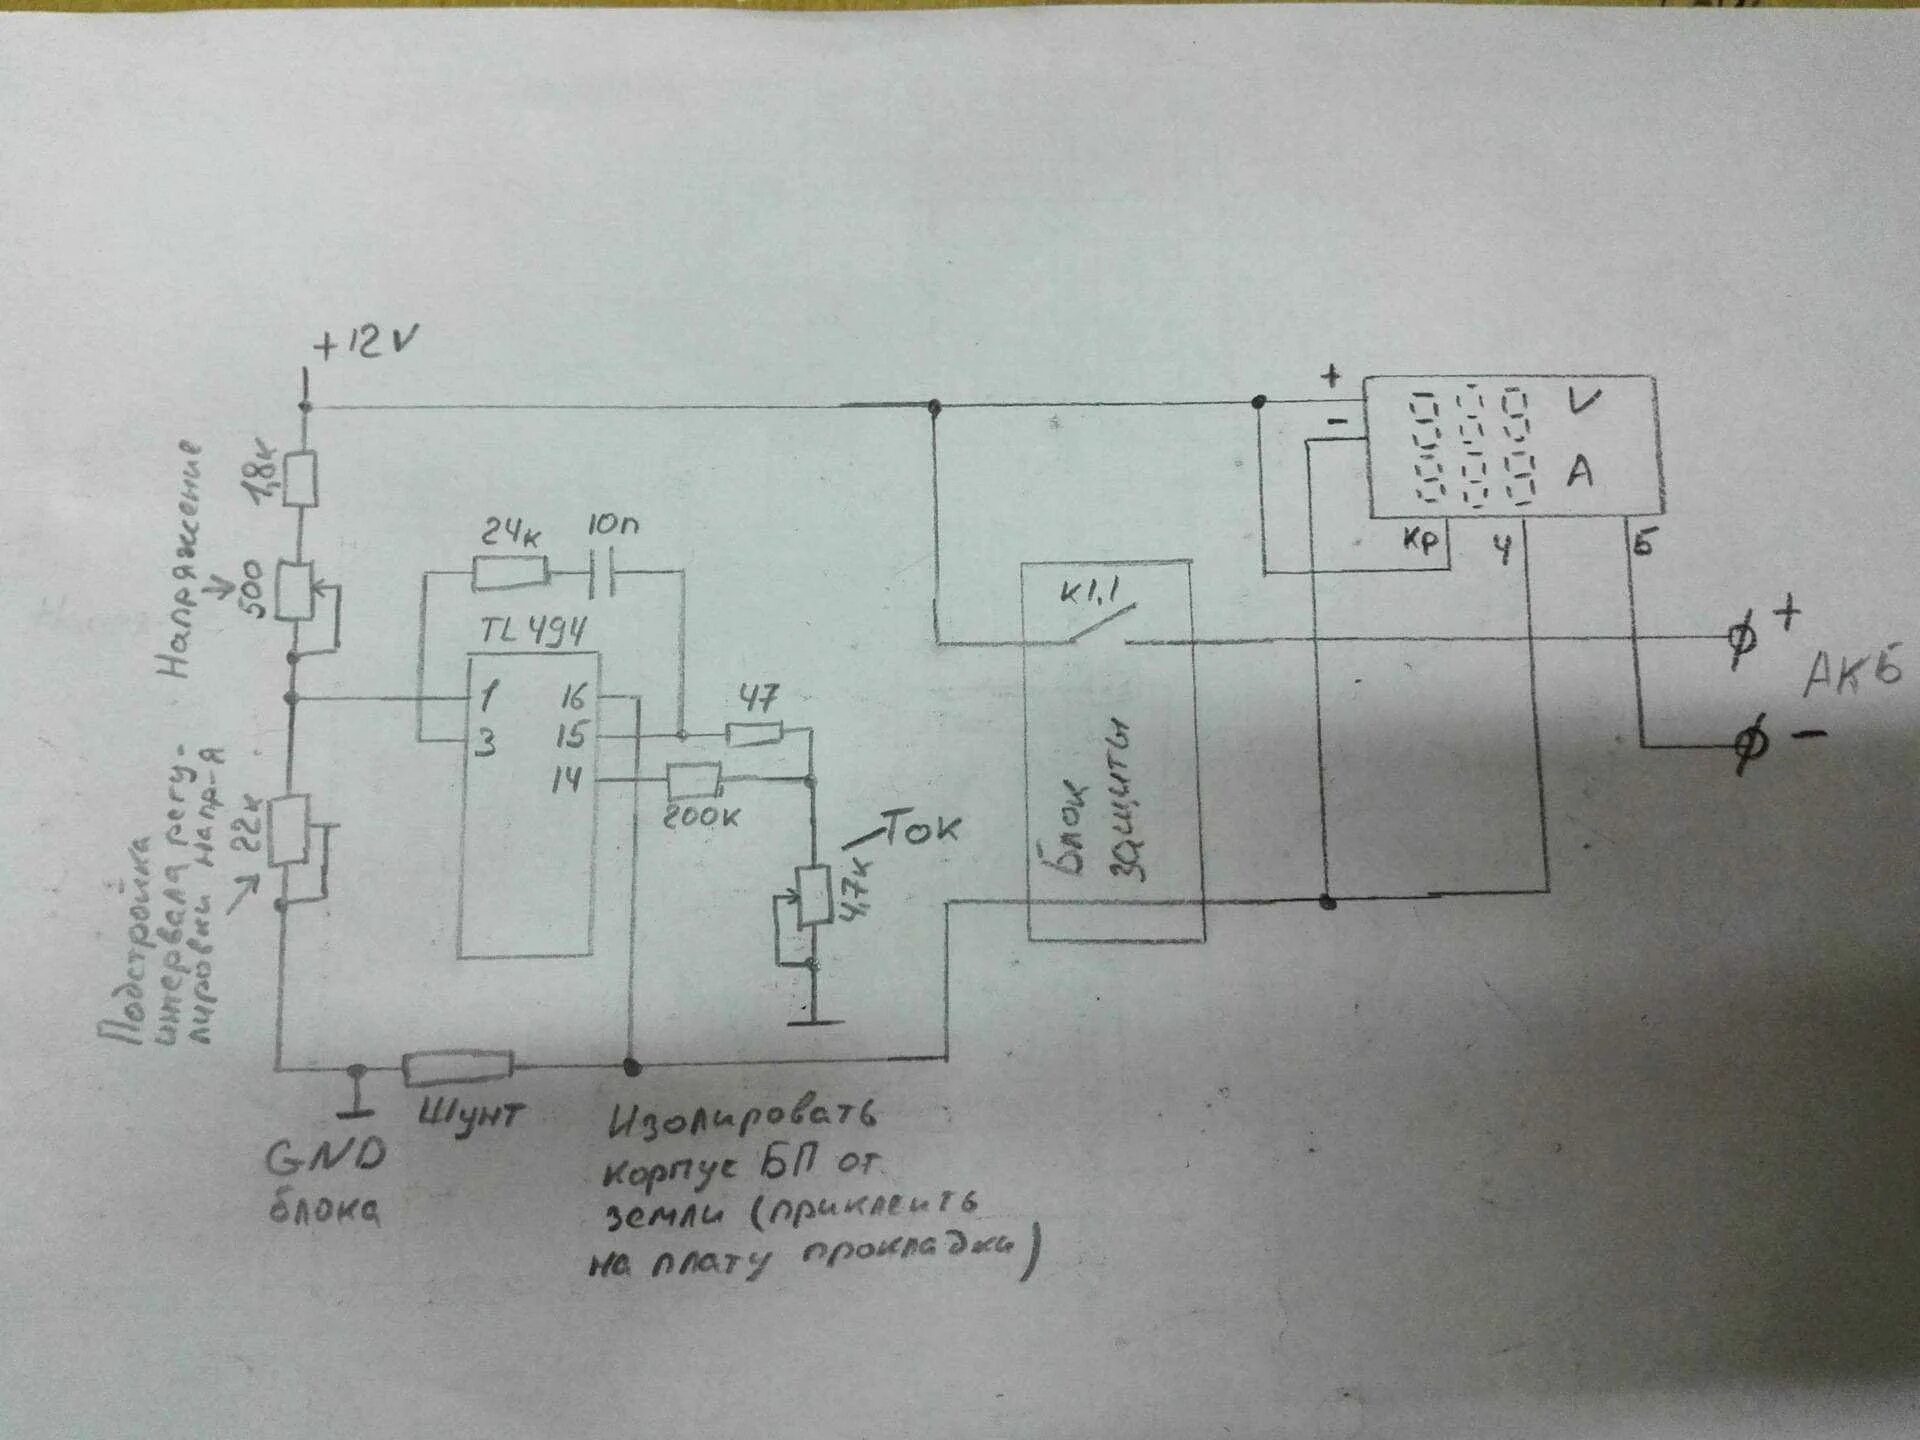 +12V
Напряжение
1,8к
500
Подстройка
интервала регу-
лировки напр-я
22к
24к
10п
TL494
1
16
3
15
14
47
200к
Ток
4,7к
GND
блока
Шунт
Изолировать
корпус БП от
земли (приклеить
на плату прокладки)
К1,1
Блок
защиты
+
-
V
A
Кр
Ч
Б
+
АКБ
-